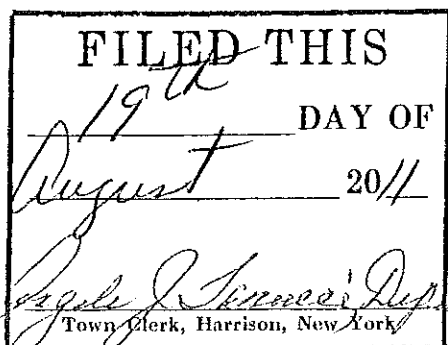 FILED THIS
19th DAY OF
August 2011
J. Dep
Town Clerk, Harrison, New York